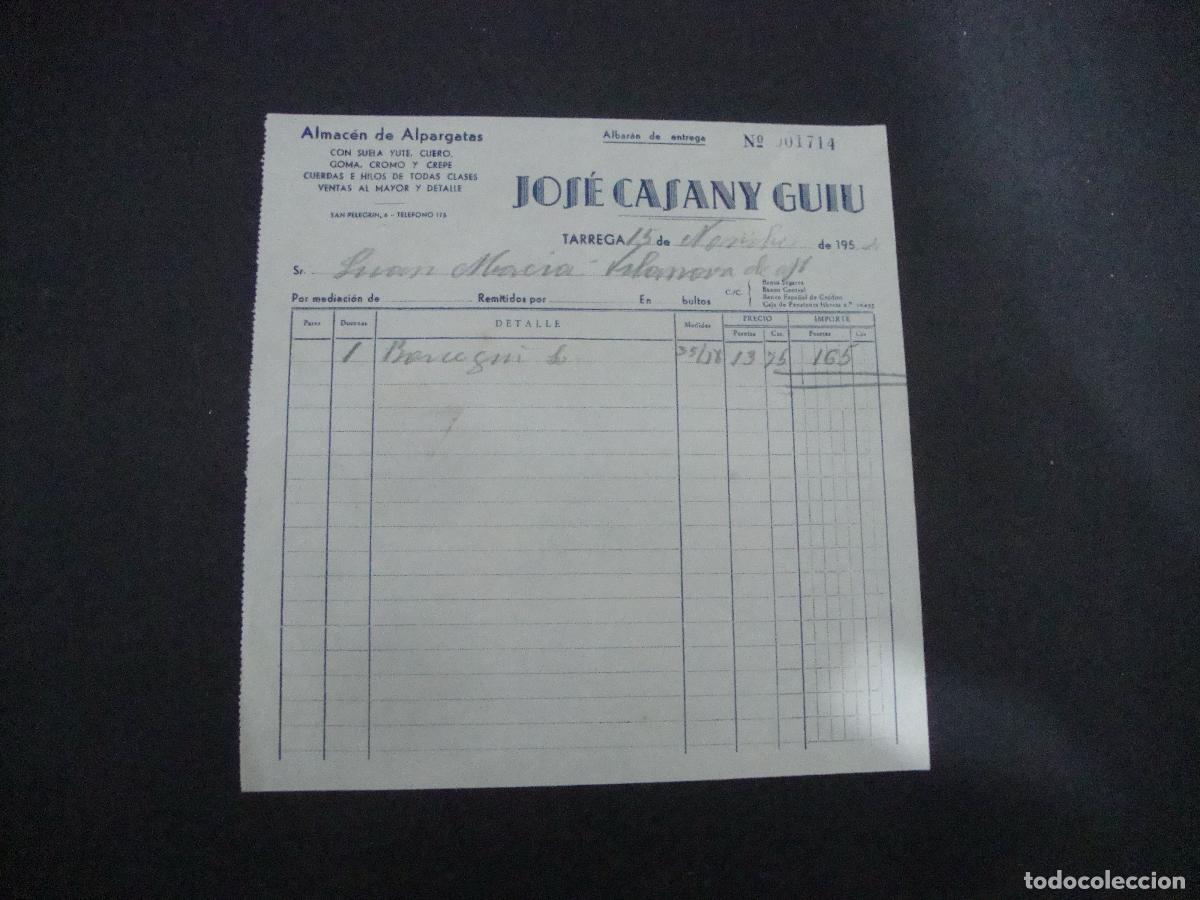 Almacén de Alpargatas
CON SUELA YUTE, CUERO,
GOMA, CROMO Y CREPE
CUERDAS E HILOS DE TODAS CLASES
VENTAS AL MAYOR Y DETALLE
SAN PELEGRIN, 6 - TELEFONO 175
Albarán de entrega
Nº 001714
JOSÉ CASANY GUIU
TARREGA 15 de Novbre de 195
Sr. Juan Macia Vilanova de
Por mediación de Remitidos por En bultos
C/C.
Banca Segarra
Banco Central
Banco Español de Crédito
Caja de Pensiones libreta n.º
Pares Docenas DETALLE Medidas PRECIO IMPORTE
Pesetas Cts. Pesetas Cts
1 Borcegui 35/38 13 75 165
todocoleccion